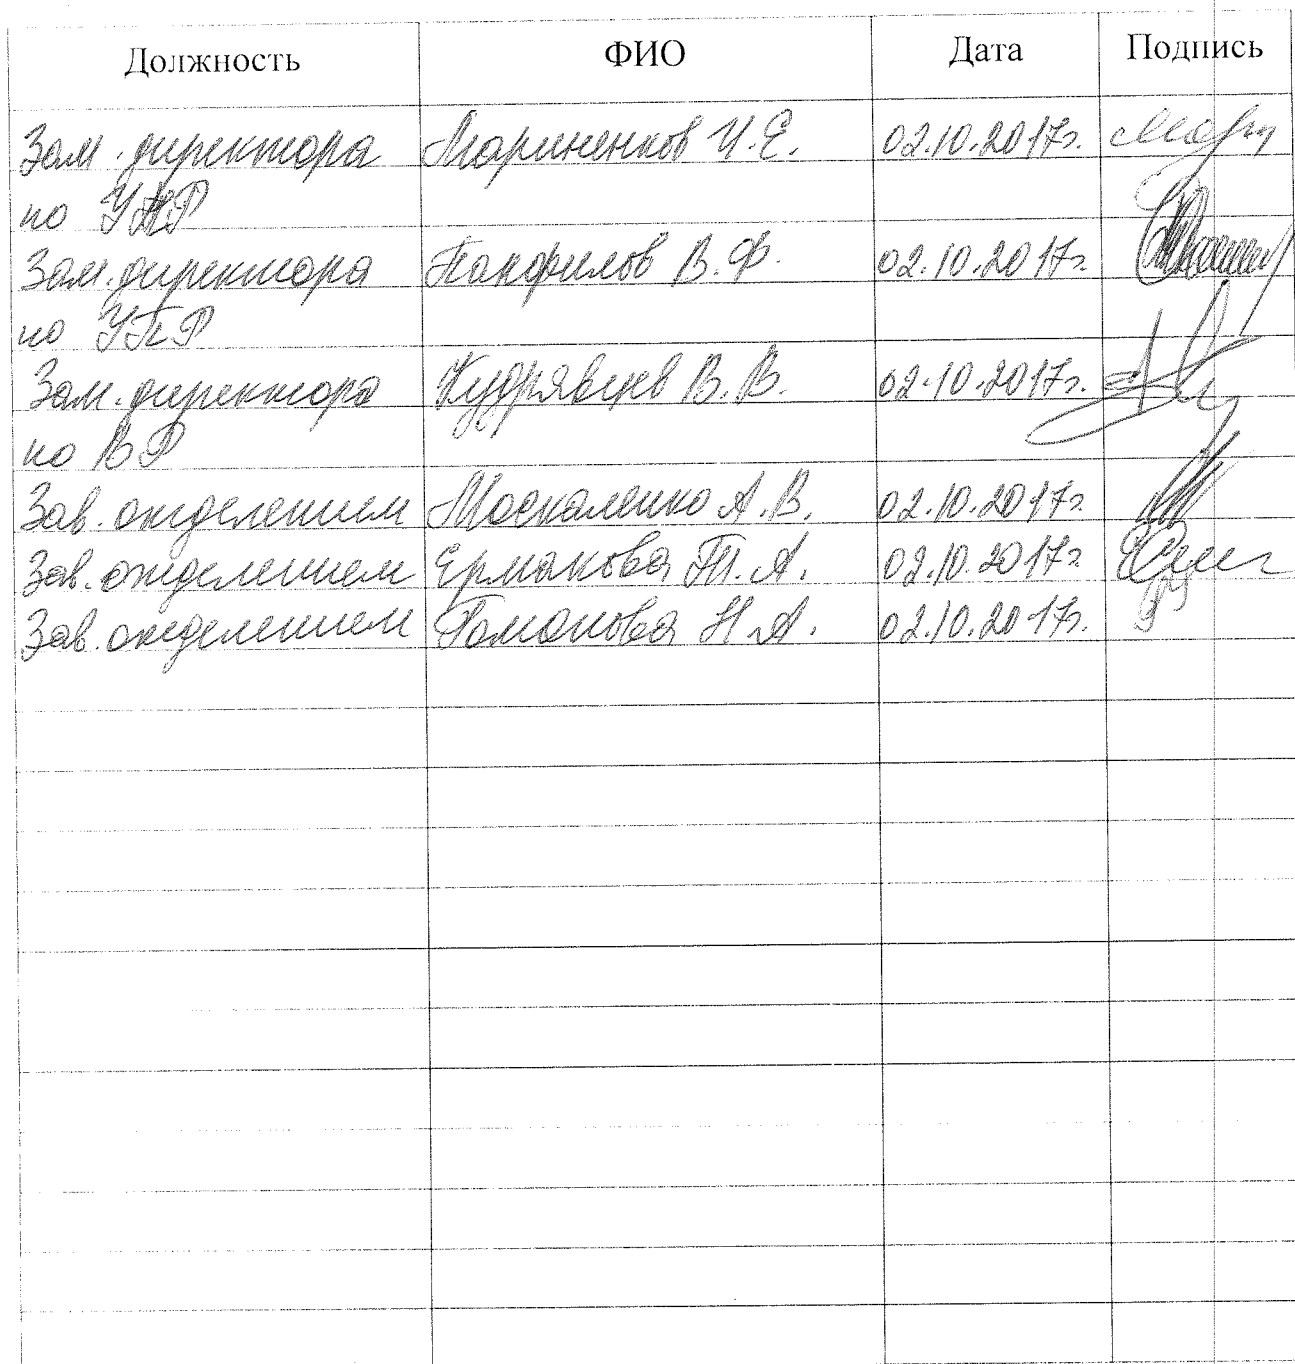 Должность ФИО Дата Подпись
Зам. директора Мариненков И.Е. 02.10.2017г.
по УМР
Зам. директора Панфилов В.Ф. 02.10.2017г.
по УПР
Зам. директора Кудрявцев В.В. 02.10.2017г.
по ВР
Зав. отделением Москаленко А.В. 02.10.2017г.
Зав. отделением Ермакова Т.А. 02.10.2017г.
Зав. отделением Н.А. 02.10.2017г.